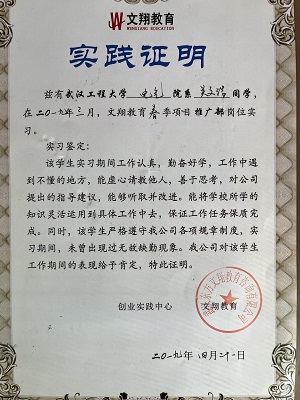 文翔教育
WENXIANG EDUCATION
实践证明
兹有武汉工程大学 电气 院系 同学,
在二〇一九年三月,文翔教育春季项目推广部岗位实
习。
实习鉴定:
该学生实习期间工作认真,勤奋好学,工作中遇
到不懂的地方,能虚心请教他人,善于思考,对公司
提出的指导建议,能够听取并改进。能将学校所学的
知识灵活运用到具体工作中去,保证工作任务保质完
成。同时,该学生严格遵守我公司各项规章制度,实
习期间,未曾出现过无故缺勤现象。我公司对该学生
工作期间的表现给予肯定,特此证明。
创业实践中心 文翔教育
二〇一九年 四月二十一日